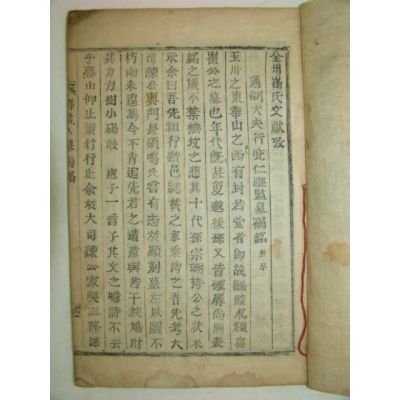 全州崔氏文獻攷
通訓大夫行庇仁縣監墓碣銘 并序
玉川之東華山之西有封若堂者卽故縣監
崔公之墓也年代旣甚夐邈後孫又皆殘孱尙闕表
銘之儀不禁樵牧之悲其十代孫宗翊持公之狀來
示余曰吾先祖行蹟邑誌載之家乘尙之吾先考大
司諫公與門長頤鳴氏嘗有志於顯刻墓左以圖不
朽而未遑焉今不肖追先君之遺意與若干族鳩財
其方方樹小碣敢 惠子一言子其文之噫詩不云
乎高山仰止景行行止余於大司諫公家契誼隆深